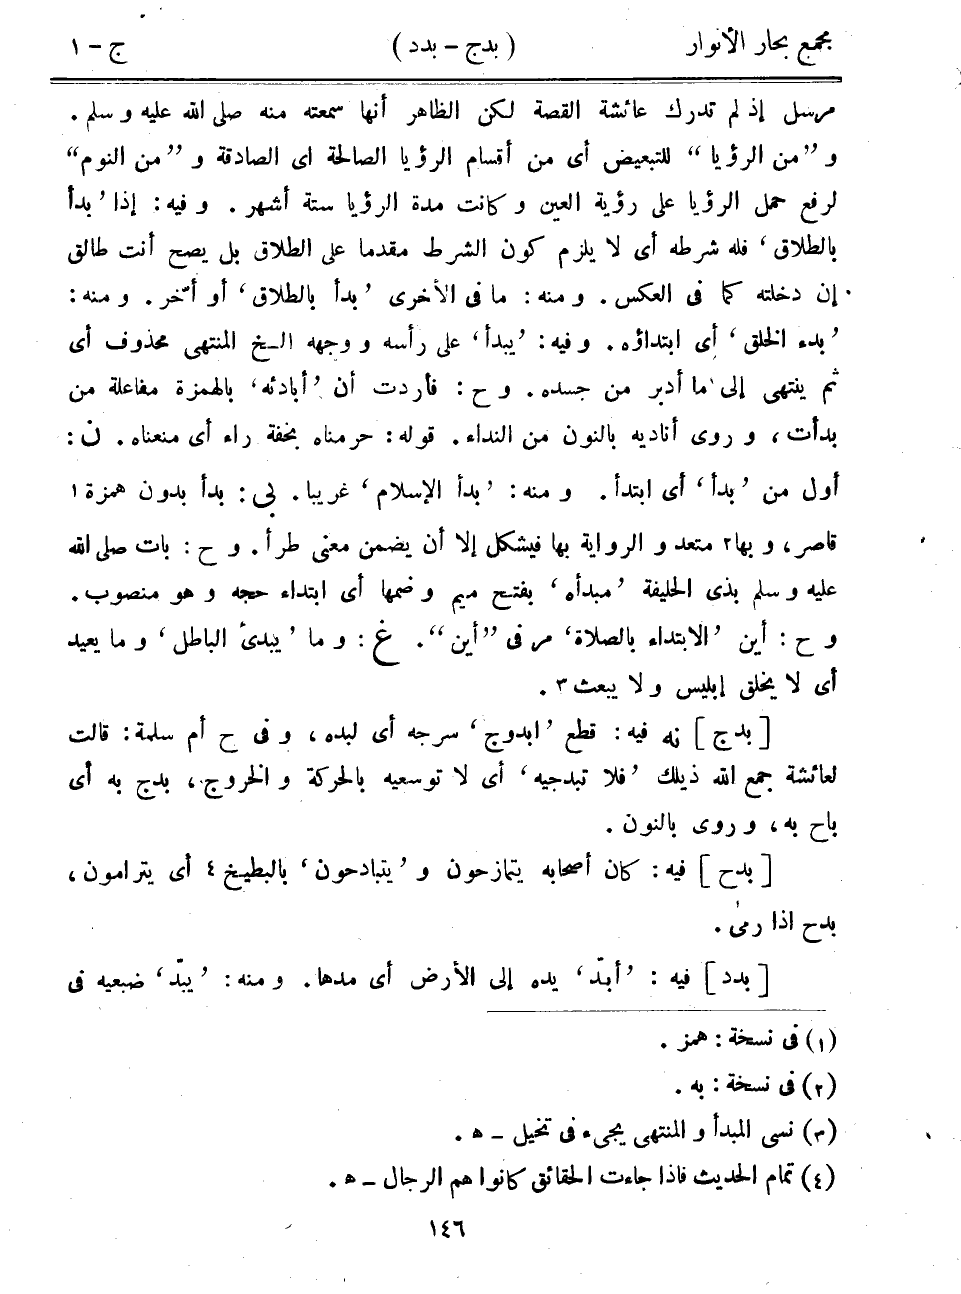 مجمع بحار الأنوار
( بدج - بدد )
ج - ١
مرسل إذ لم تدرك عائشة القصة لكن الظاهر أنها سمعته منه صلى الله عليه و سلم .
و ”من الرؤيا“ للتبعيض أى من أقسام الرؤيا الصالحة اى الصادقة و ”من النوم“
لرفع حمل الرؤيا على رؤية العين و كانت مدة الرؤيا ستة أشهر . و فيه : إذا ’بدأ
بالطلاق‘ فله شرطه أى لا يلزم كون الشرط مقدما على الطلاق بل يصح أنت طالق
إن دخلته كما فى العكس . و منه : ما فى الأخرى ’بدأ بالطلاق‘ أو أخر . و منه :
’بدء الخلق‘ أى ابتداؤه . وفيه : ’يبدأ‘ على رأسه و وجهه الـخ المنتهى محذوف أى
ثم ينتهى إلى ما أدبر من جسده . و ح : فأردت أن ’أبادئه‘ بالهمزة مفاعلة من
بدأت ، و روى أناديه بالنون من النداء . قوله : حرمناه بخفة راء أى منعناه . ن :
أول من ’بدأ‘ أى ابتدأ . و منه : ’بدأ الإسلام‘ غريبا . بى : بدأ بدون همزة ١
قاصر ، و بها٢ متعد و الرواية بها فيشكل إلا أن يضمن معنى طرأ . و ح : بات صلى الله
عليه و سلم بذى الحليفة ’مبدأه‘ بفتح ميم و ضمها أى ابتداء حجه و هو منصوب .
و ح : أين ’الابتداء بالصلاة‘ مر فى ”أين“ . غ : و ما ’يبدئ الباطل‘ و ما يعيد
أى لا يخلق إبليس و لا يبعث ٣ .
[ بدج ] نه فيه : قطع ’ابدوج‘ سرجه أى لبده ، و فى ح أم سلمة : قالت
لعائشة جمع الله ذيلك ’فلا تبدجيه‘ أى لا توسعيه بالحركة و الخروج ، بدج به أى
باح به ، و روى بالنون .
[ بدح ] فيه : كان أصحابه يتمازحون و ’يتبادحون‘ بالبطيخ ٤ أى يترامون ،
بدح اذا رمى .
[ بدد ] فيه : ’أبدّ‘ يده إلى الأرض أى مدها . و منه : ’يبدّ‘ ضبعيه فى
(١) فى نسخة : همز .
(٢) فى نسخة : به .
(٣) نسى المبدأ و المنتهى يجىء فى تخيل - ه .
(٤) تمام الحديث فاذا جاءت الحقائق كانوا هم الرجال - ه .
١٤٦